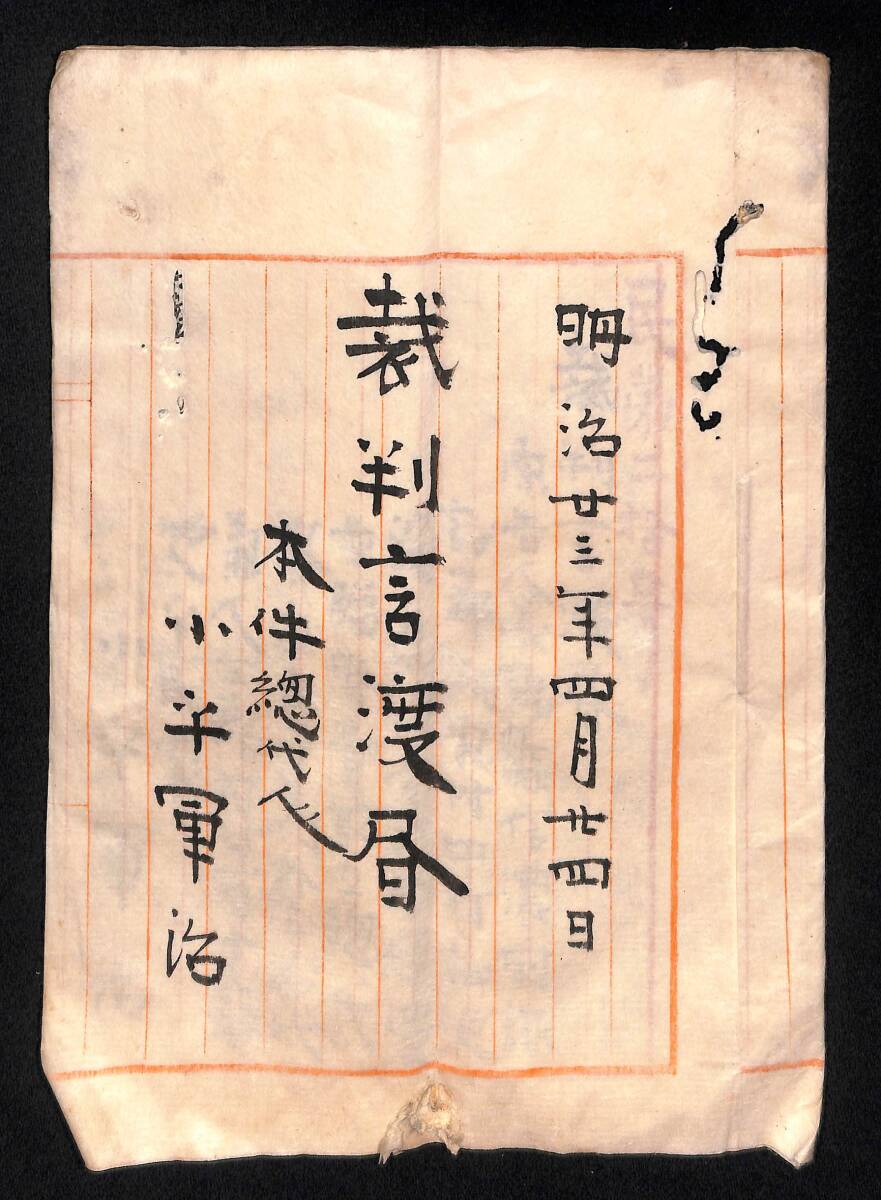 明治廿三年四月廿四日
裁判言渡書
本件總代人
小平軍治